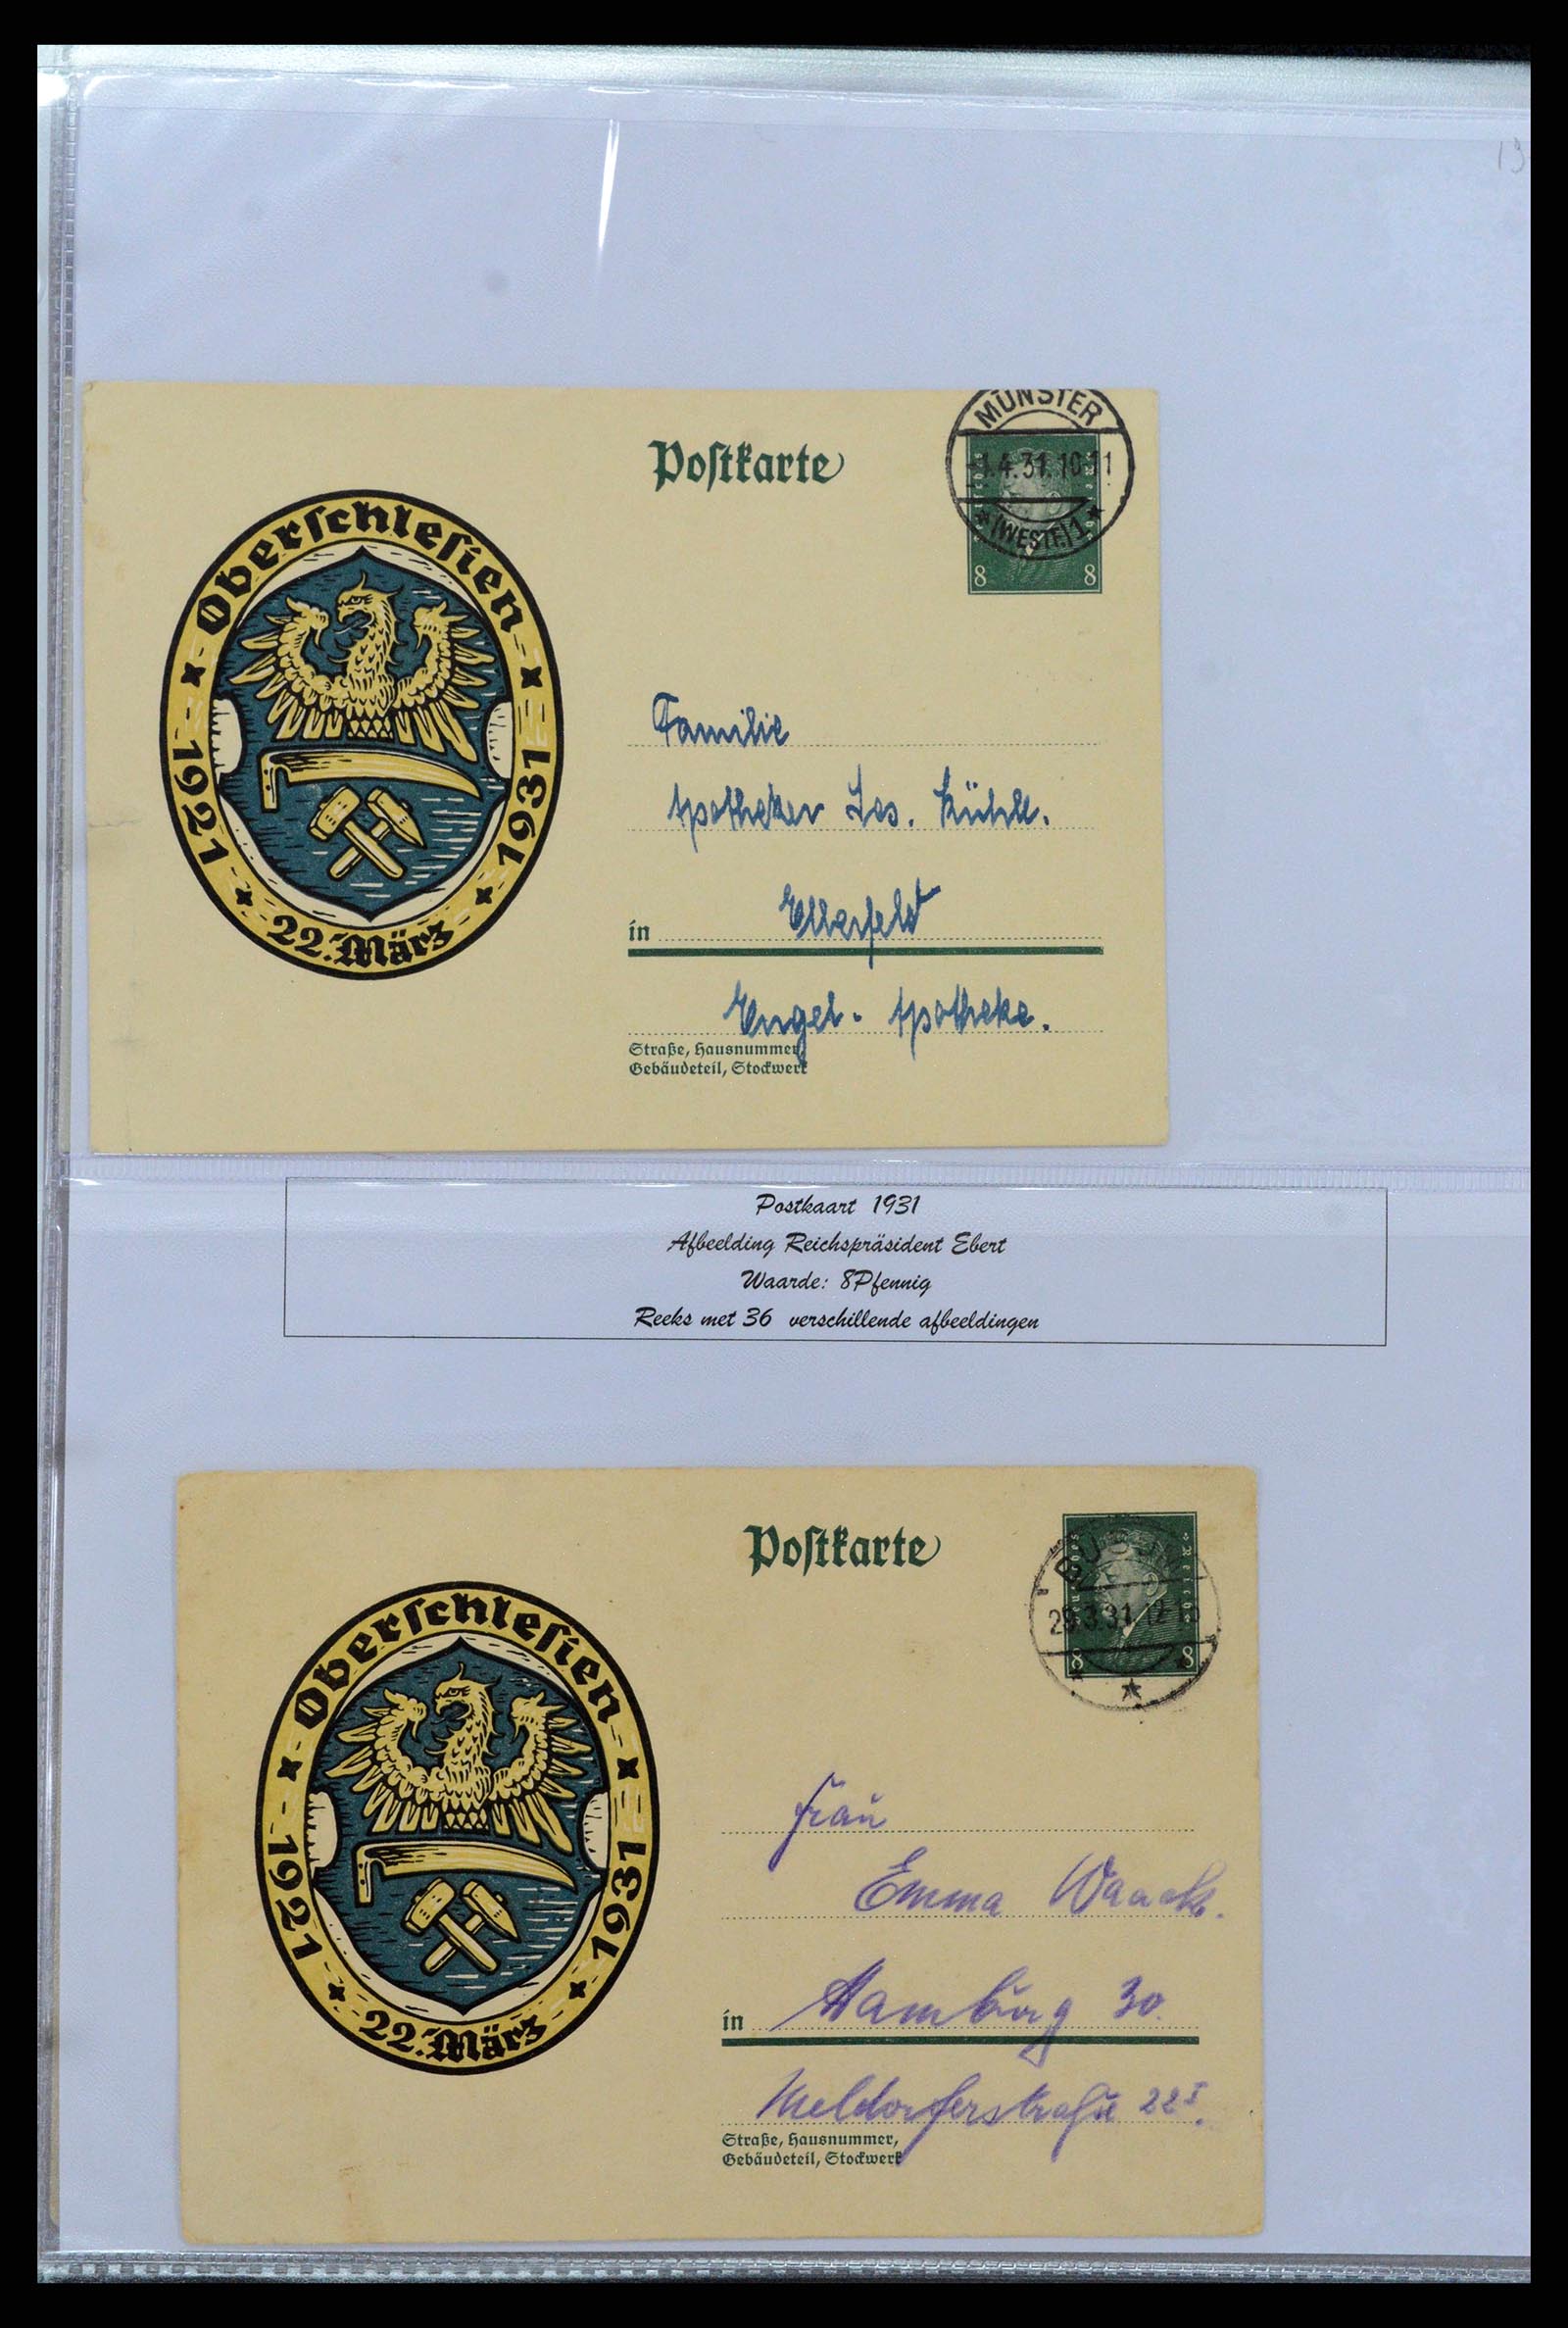 13
Postkarte
MÜNSTER
1.4.31.10-11
* (WESTF) 1 *
8 8
Oberschlesien
1921 1931
22. März
Familie
Apotheker Jos. Kühll.
in Elberfeld
Engel-Apotheke.
Straße, Hausnummer,
Gebäudeteil, Stockwerk
Postkaart 1931
Afbeelding Reichspräsident Ebert
Waarde: 8Pfennig
Reeks met 36 verschillende afbeeldingen
Postkarte
29.3.31.12-13
8 8
Oberschlesien
1921 1931
22. März
Frau
Emma Waack.
in Hamburg 30.
Meldorferstraße 22 I.
Straße, Hausnummer,
Gebäudeteil, Stockwerk